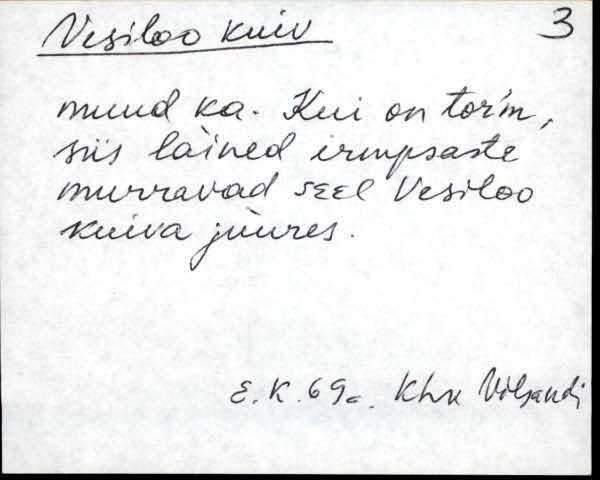 Vesiloo kuiv 3
muud ka. Kui on tor'm,
siis lained irmpsaste
murravad seel Vesiloo
kuiva juures.
E.K. 69a. Khk Vilsandi